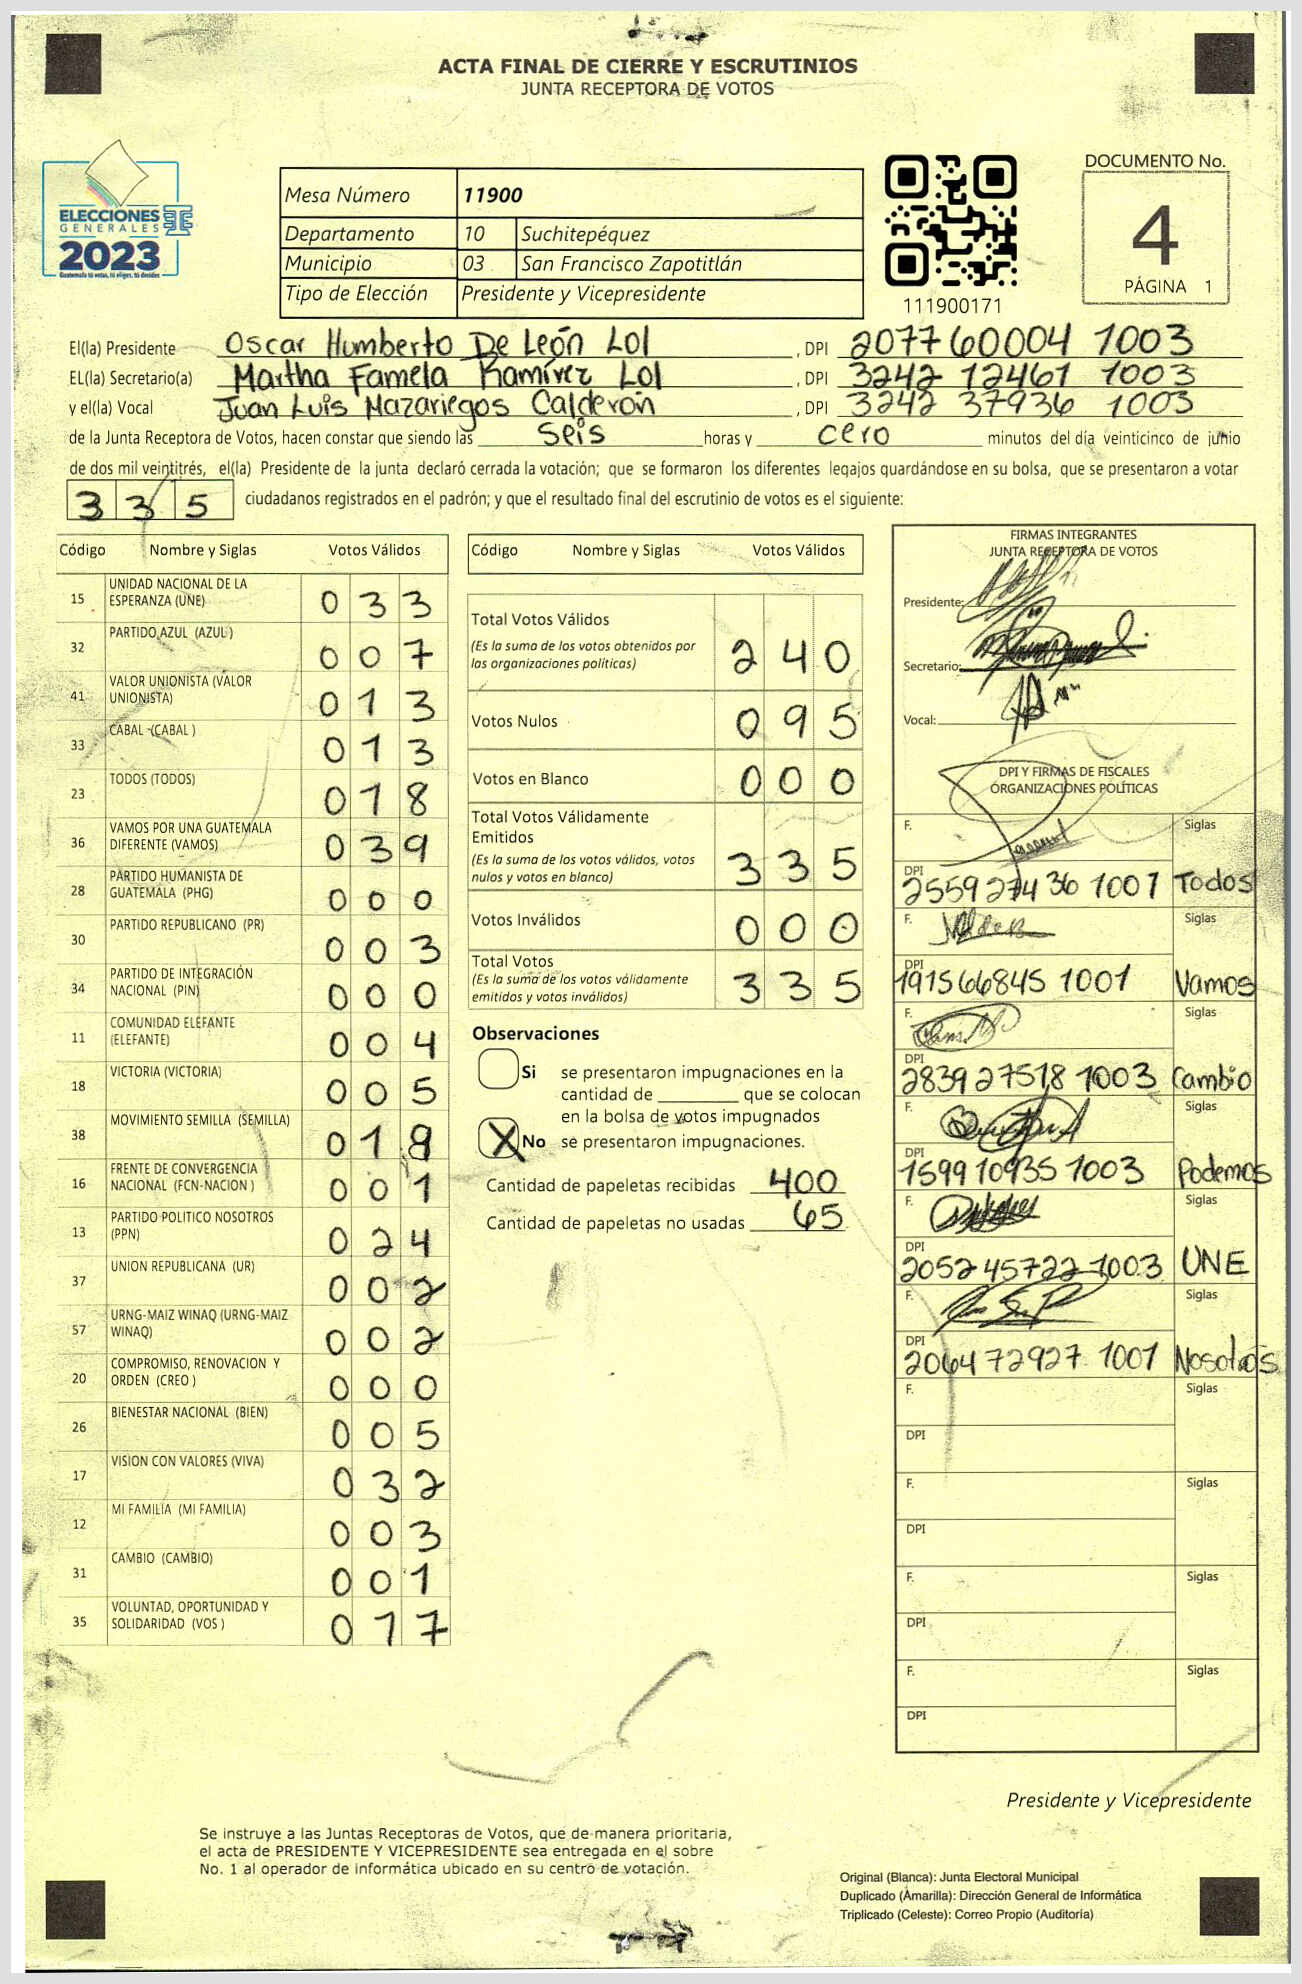 ACTA FINAL DE CIERRE Y ESCRUTINIOS
JUNTA RECEPTORA DE VOTOS
ELECCIONES
GENERALES
2023
Guatemala tú votas, tú eliges, tú decides
Mesa Número 11900
Departamento 10 Suchitepéquez
Municipio 03 San Francisco Zapotitlán
Tipo de Elección Presidente y Vicepresidente
111900171
DOCUMENTO No.
4
PÁGINA 1
El(la) Presidente Oscar Humberto De León Lol , DPI 2077 60004 1003
EL(la) Secretario(a) Martha Famela Ramírez Lol , DPI 3242 12461 1003
y el(la) Vocal Juan Luis Mazariegos Calderón , DPI 3242 37936 1003
de la Junta Receptora de Votos, hacen constar que siendo las seis horas y cero minutos del día veinticinco de junio
de dos mil veintitrés, el(la) Presidente de la junta declaró cerrada la votación; que se formaron los diferentes legajos guardándose en su bolsa, que se presentaron a votar
335 ciudadanos registrados en el padrón; y que el resultado final del escrutinio de votos es el siguiente:
Código Nombre y Siglas Votos Válidos
15 UNIDAD NACIONAL DE LA
ESPERANZA (UNE) 033
32 PARTIDO AZUL (AZUL) 007
41 VALOR UNIONISTA (VALOR
UNIONISTA) 013
33 CABAL (CABAL) 013
23 TODOS (TODOS) 018
36 VAMOS POR UNA GUATEMALA
DIFERENTE (VAMOS) 039
28 PARTIDO HUMANISTA DE
GUATEMALA (PHG) 000
30 PARTIDO REPUBLICANO (PR) 003
34 PARTIDO DE INTEGRACIÓN
NACIONAL (PIN) 000
11 COMUNIDAD ELEFANTE
(ELEFANTE) 004
18 VICTORIA (VICTORIA) 005
38 MOVIMIENTO SEMILLA (SEMILLA)
16 FRENTE DE CONVERGENCIA
NACIONAL (FCN-NACION) 001
13 PARTIDO POLITICO NOSOTROS
(PPN) 024
37 UNION REPUBLICANA (UR) 002
57 URNG-MAIZ WINAQ (URNG-MAIZ
WINAQ) 002
20 COMPROMISO, RENOVACION Y
ORDEN (CREO) 000
26 BIENESTAR NACIONAL (BIEN) 005
17 VISION CON VALORES (VIVA) 032
12 MI FAMILIA (MI FAMILIA) 003
31 CAMBIO (CAMBIO) 001
35 VOLUNTAD, OPORTUNIDAD Y
SOLIDARIDAD (VOS) 017
Código Nombre y Siglas Votos Válidos
Total Votos Válidos
(Es la suma de los votos obtenidos por
las organizaciones políticas) 240
Votos Nulos 095
Votos en Blanco 000
Total Votos Válidamente
Emitidos
(Es la suma de los votos válidos, votos
nulos y votos en blanco) 335
Votos Inválidos 000
Total Votos
(Es la suma de los votos válidamente
emitidos y votos inválidos) 335
Observaciones
Si se presentaron impugnaciones en la
cantidad de ________ que se colocan
en la bolsa de votos impugnados
X No se presentaron impugnaciones.
Cantidad de papeletas recibidas 400
Cantidad de papeletas no usadas 65
FIRMAS INTEGRANTES
JUNTA RECEPTORA DE VOTOS
Presidente:
Secretario:
Vocal:
DPI Y FIRMAS DE FISCALES
ORGANIZACIONES POLÍTICAS
F. Siglas
DPI
2559 27436 1001 Todos
F. Siglas
DPI
1915 66845 1001 Vamos
F. Siglas
DPI
2839 27518 1003 Cambio
F. Siglas
DPI
1599 10935 1003 Podemos
F. Siglas
DPI
2052 45722 1003 UNE
F. Siglas
DPI
2064 72927 1001 Nosotros
F. Siglas
DPI
F. Siglas
DPI
F. Siglas
DPI
F. Siglas
DPI
Presidente y Vicepresidente
Se instruye a las Juntas Receptoras de Votos, que de manera prioritaria,
el acta de PRESIDENTE Y VICEPRESIDENTE sea entregada en el sobre
No. 1 al operador de informática ubicado en su centro de votación.
Original (Blanca): Junta Electoral Municipal
Duplicado (Amarilla): Dirección General de Informática
Triplicado (Celeste): Correo Propio (Auditoría)